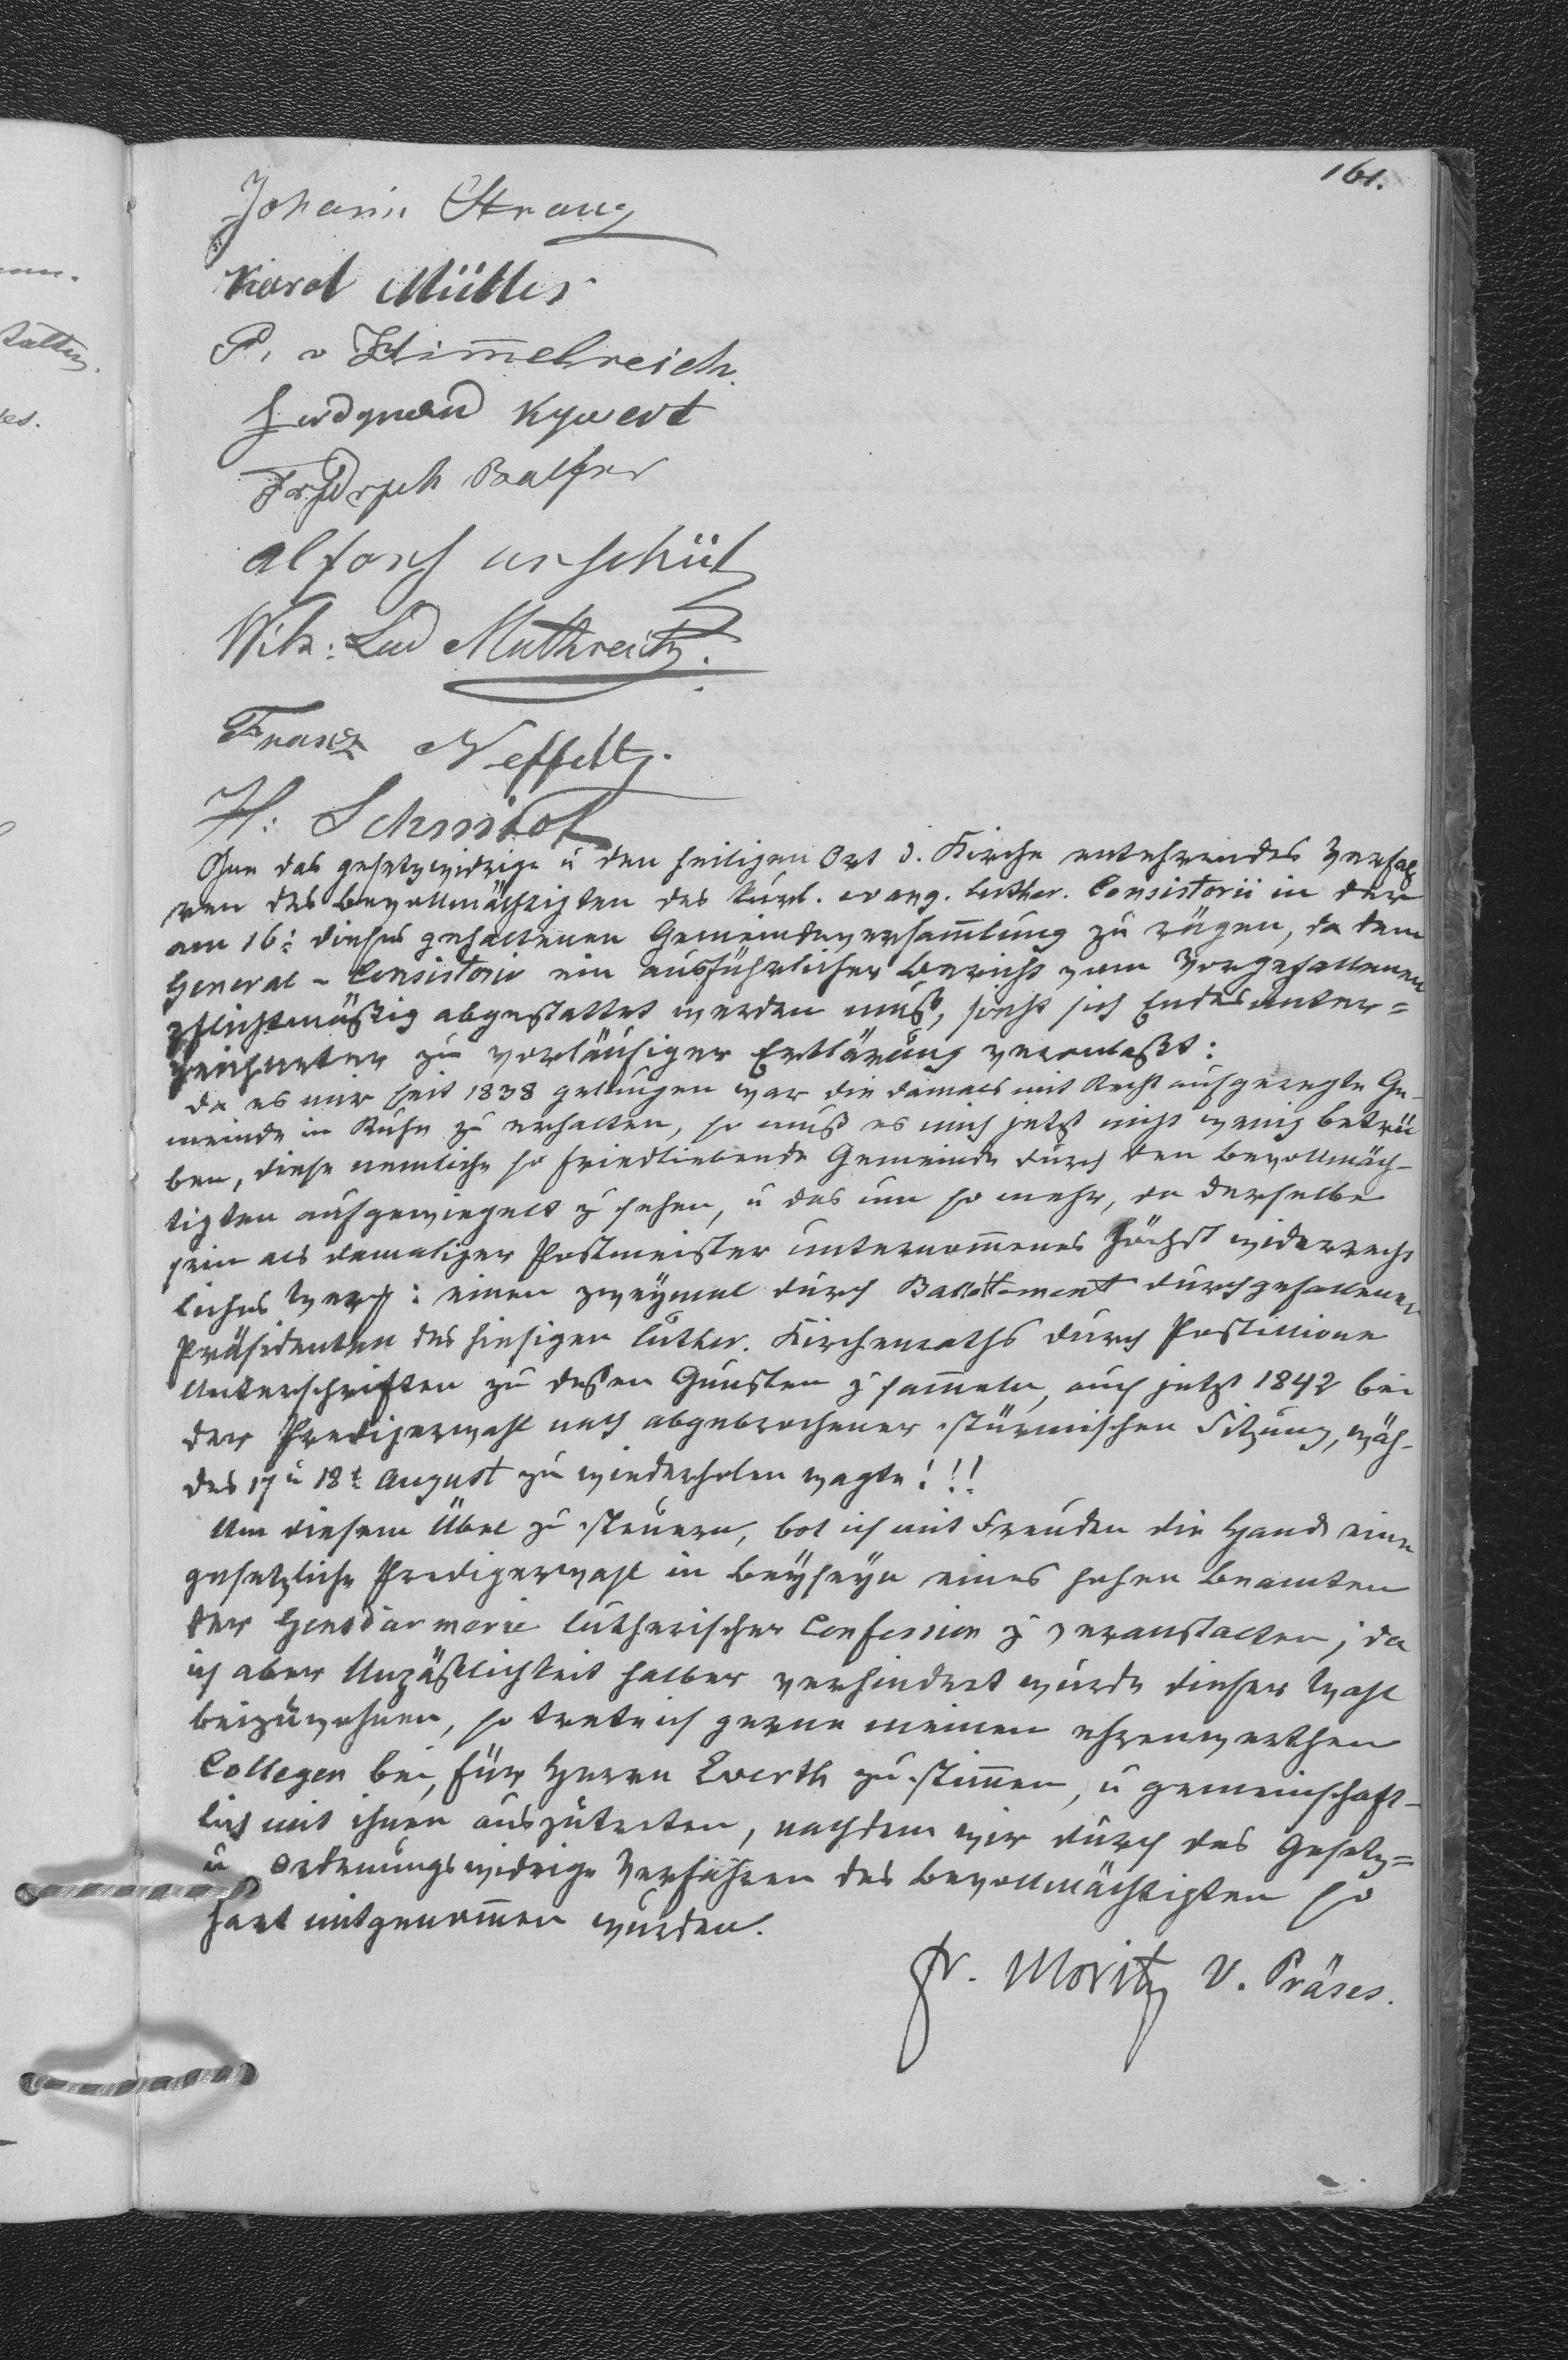 161.
Johann Strauz
Karol Müller
P. v Himmelreich.
Ferdynand Kywert
Frydrych Balzer
alfons urschütz
Wilh: Lud Muthreich.
Franz Neffeltz.
H: Schmidt
Ohne das gesetzwidrige u den heiligen Ort d. Kirche entehrendes Verfah
ren des Bevollmächtigten des kurl. evang. luther. Consistorii in der
am 16: dieses gehaltenen Gemeindeversam̄lung zu rügen, da dem
General-Consistorio ein ausführlicher Bericht vom Vorgefallenen
pflichtmäßig abgestattet werden muß, sieht sich Endesunter=
zeichneter zu vorläufiger Erklärung veranlaßt:
da es mir seit 1838 gelungen war die damals mit Recht aufgeregte Ge-
meinde in Ruhe zu erhalten, so muß es mich jetzt nicht wenig betrü
ben, diese nemliche so friedliebende Gemeinde durch den Bevollmäch-
tigten aufgewiegelt z sehen, u das um so mehr, da derselbe
sein als damaliger Postmeister unternom̄enes höchst widerrecht
liches Werk: einen zweÿmal durch Ballottement durchgefallenen
Präsidenten des hiesigen luther. Kirchenraths durch Postillione
Unterschriften zu deßen Gunsten z sam̄eln, auch jetzt 1842 bei
der Predigerwahl nach abgebrochener stürmischen Sitzung, wäh-
des 17 u 18t August zu wiederholen wagte!!!
Um diesem Übel zu steuern, bot ich mit Freuden die Hand eine
gesetzliche Predigerwahl in Beÿseÿn eines hohen Beamten
der Gensdarmerie lutherischer Confession z veranstalten; da
ich aber Unpäßlichkeit halber verhindert wurde dieser Wahl
beizuwohnen, so trete ich gerne meinen ehrenwerthen
Collegen bei, für Herrn Ewerth zu stim̄en, u gemeinschaft-
lich mit ihnen auszutreten, nachdem wir durch das Gesetz=
u ordnungswidrige Verfahren des Bevollmächtigten so
hart mitgenom̄en wurden.
Fr. Moritz V. Präses.